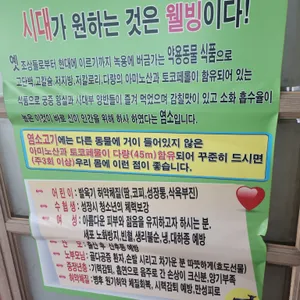 시대가 원하는 것은 웰빙이다!
옛 조상들로부터 현대에 이르기까지 녹용에 버금가는 약용동물 식품으로
고단백,고칼슘,저지방,저칼로리, 다량의 아미노산과 토코페롤이 함유되어 있는
식품으로 궁중 왕실과 사대부 양반들이 즐겨 먹었으며 감칠맛이 있고 소화 흡수율이
높은 바로 신이 인간을 위해 하사 하였다는 염소입니다.
염소고기에는 다른 동물에 거의 들어있지 않은
아미노산과 토코페롤이 다량(45m)함유되어 꾸준히 드시면
(주3회 이상)우리 몸에 이런 점이 좋습니다.
어린이 : 발육기 허약체질(땀,코피,성장통,식욕부진)
수험생 : 성장시 청소년의 체력보강
여성 : 아름다운 피부와 젊음을 유지하고자 하시는 분.
세포 노화방지,빈혈,생리불순,냉,대하증 예방
산 부 : 출산 후, 산후풍 예방
노부모님 : 골다공증 환자, 손발이 시리고 차가운 분 따뜻하게(효도선물)
중장년층 : 기력감퇴, 흡연으로 음주로 간 손상이 크신분,양기부족
허약체질 : 병후 원기부족 체력회복, 시력감퇴 예방,만성피로